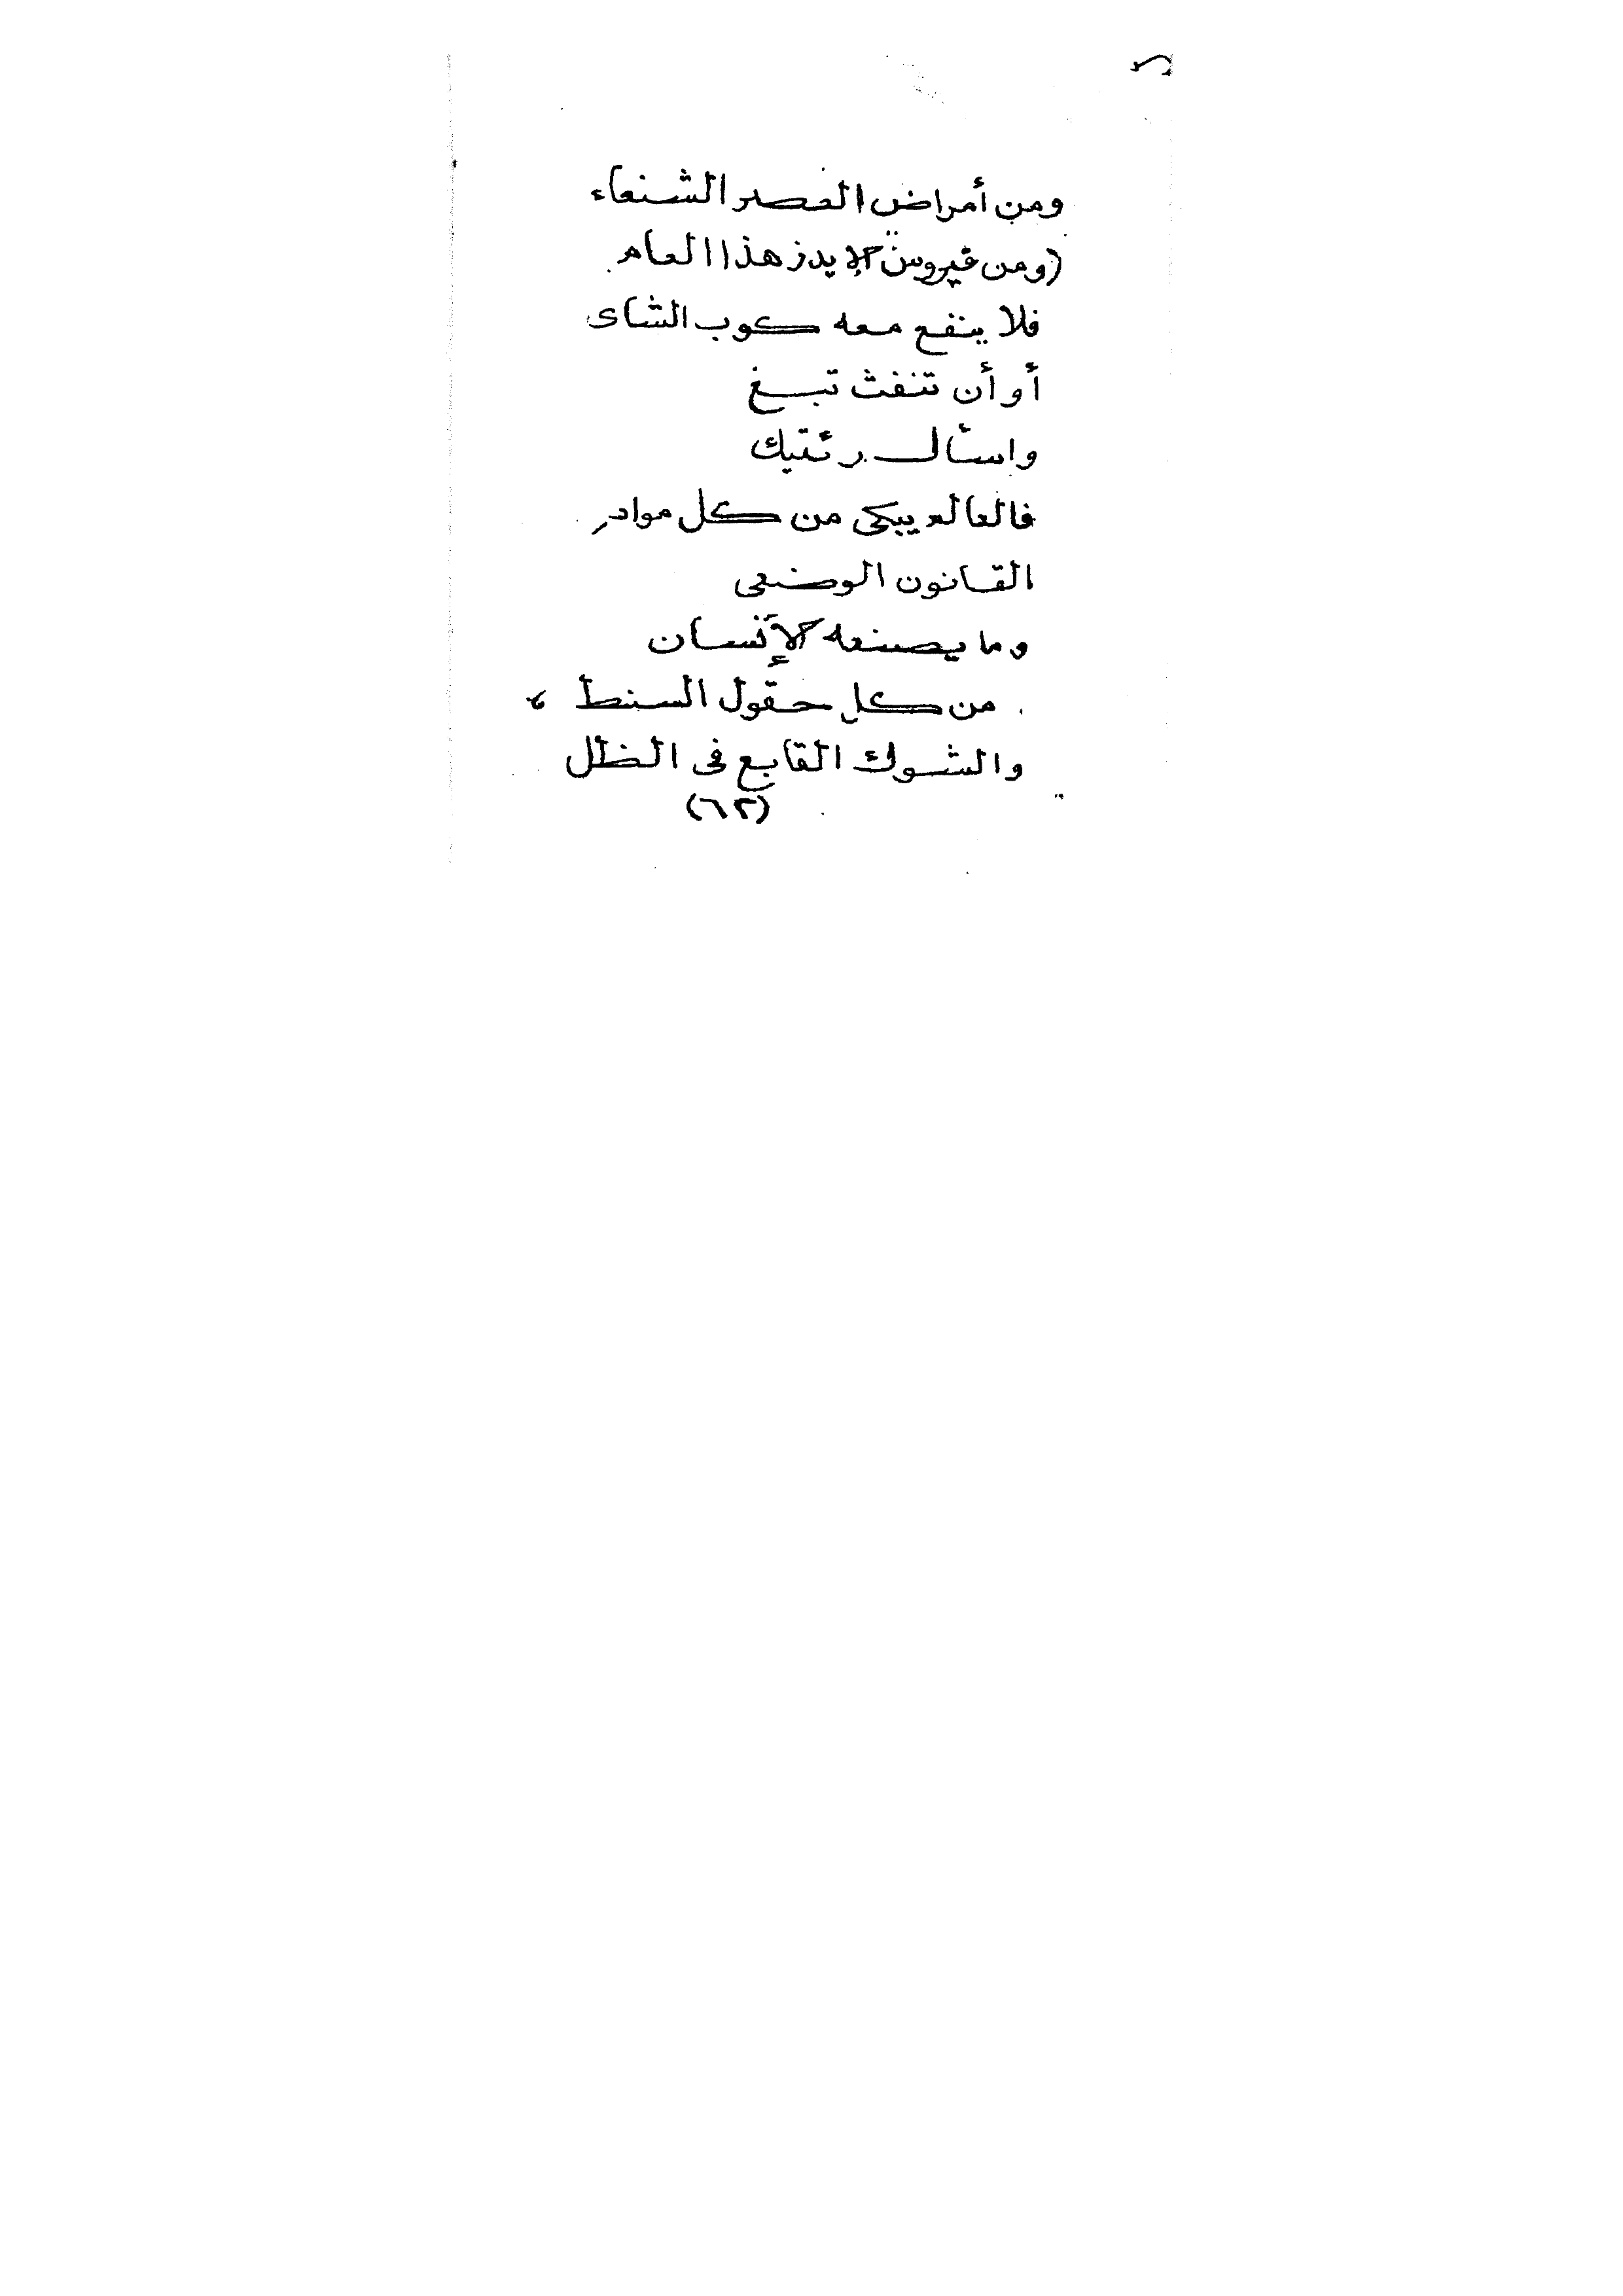 ومن أمراض العصر الشنعاء
(ومن فيروس الإيدز هذا العام
فلا ينفع معه كوب الشاى
أو أن تنفث تبغ
واسأل رئتيك
فالعالم يبكى من كل مواد
القانون الوضعى
وما يصنعه الإنسان
من كل حقول السنط ،
والشوك القابع فى الظل
(٦٢)